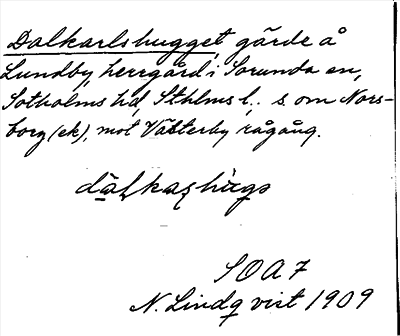 Dalkarlshugget, gärde å
Lundby herrgård i Sorunda sn,
Sotholms hd, Sthlms l.. s. om Nors-
borg (ek), mot Västerby rågång.
SOA 7
N. Lindqvist 1909